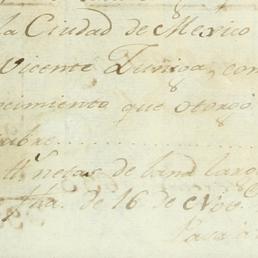 la Ciudad de Mexico
Vicente Zuñiga, con
cimiento que otorgó
de land larg
fha. de 16 de Nov.